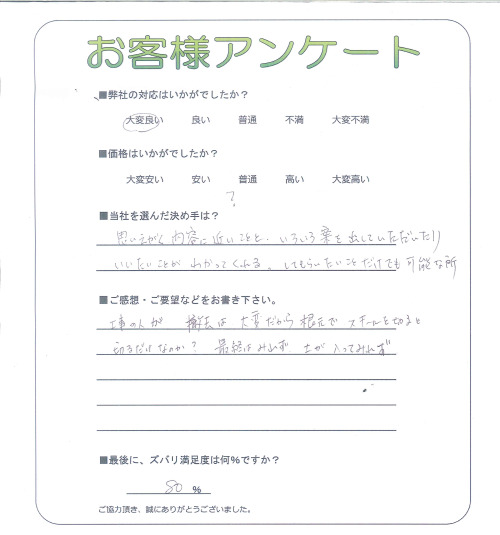 お客様アンケート
■弊社の対応はいかがでしたか？
大変良い 良い 普通 不満 大変不満
■価格はいかがでしたか？
大変安い 安い 普通 高い 大変高い
?
■当社を選んだ決め手は？
思いえがく内容に近いことと、いろいろ案を出していただいたり
いいたいことが わかってくれる。してもらいたいことだけでも可能な所
■ご感想・ご要望などをお書き下さい。
工事の人が 撤去は 大変だから 根元で スチールを切ると
切るだけなのか？ 最終はみれず 土が入ってみれず
■最後に、ズバリ満足度は何％ですか？
80 %
ご協力頂き、誠にありがとうございました。